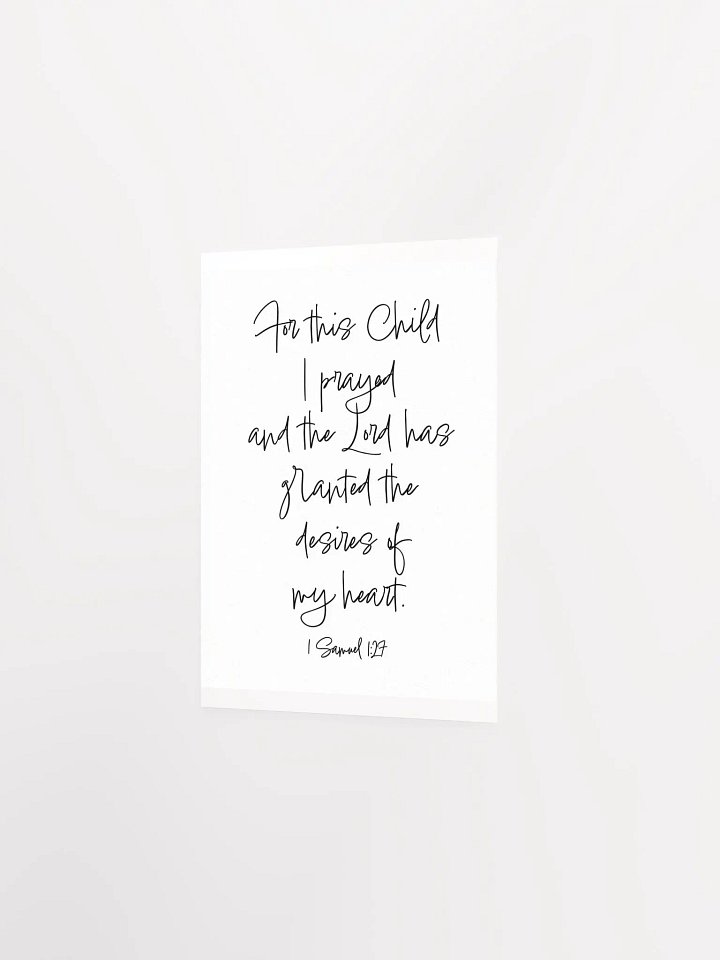 For this Child
I prayed
and the Lord has
granted the
desires of
my heart.
1 Samuel 1:27